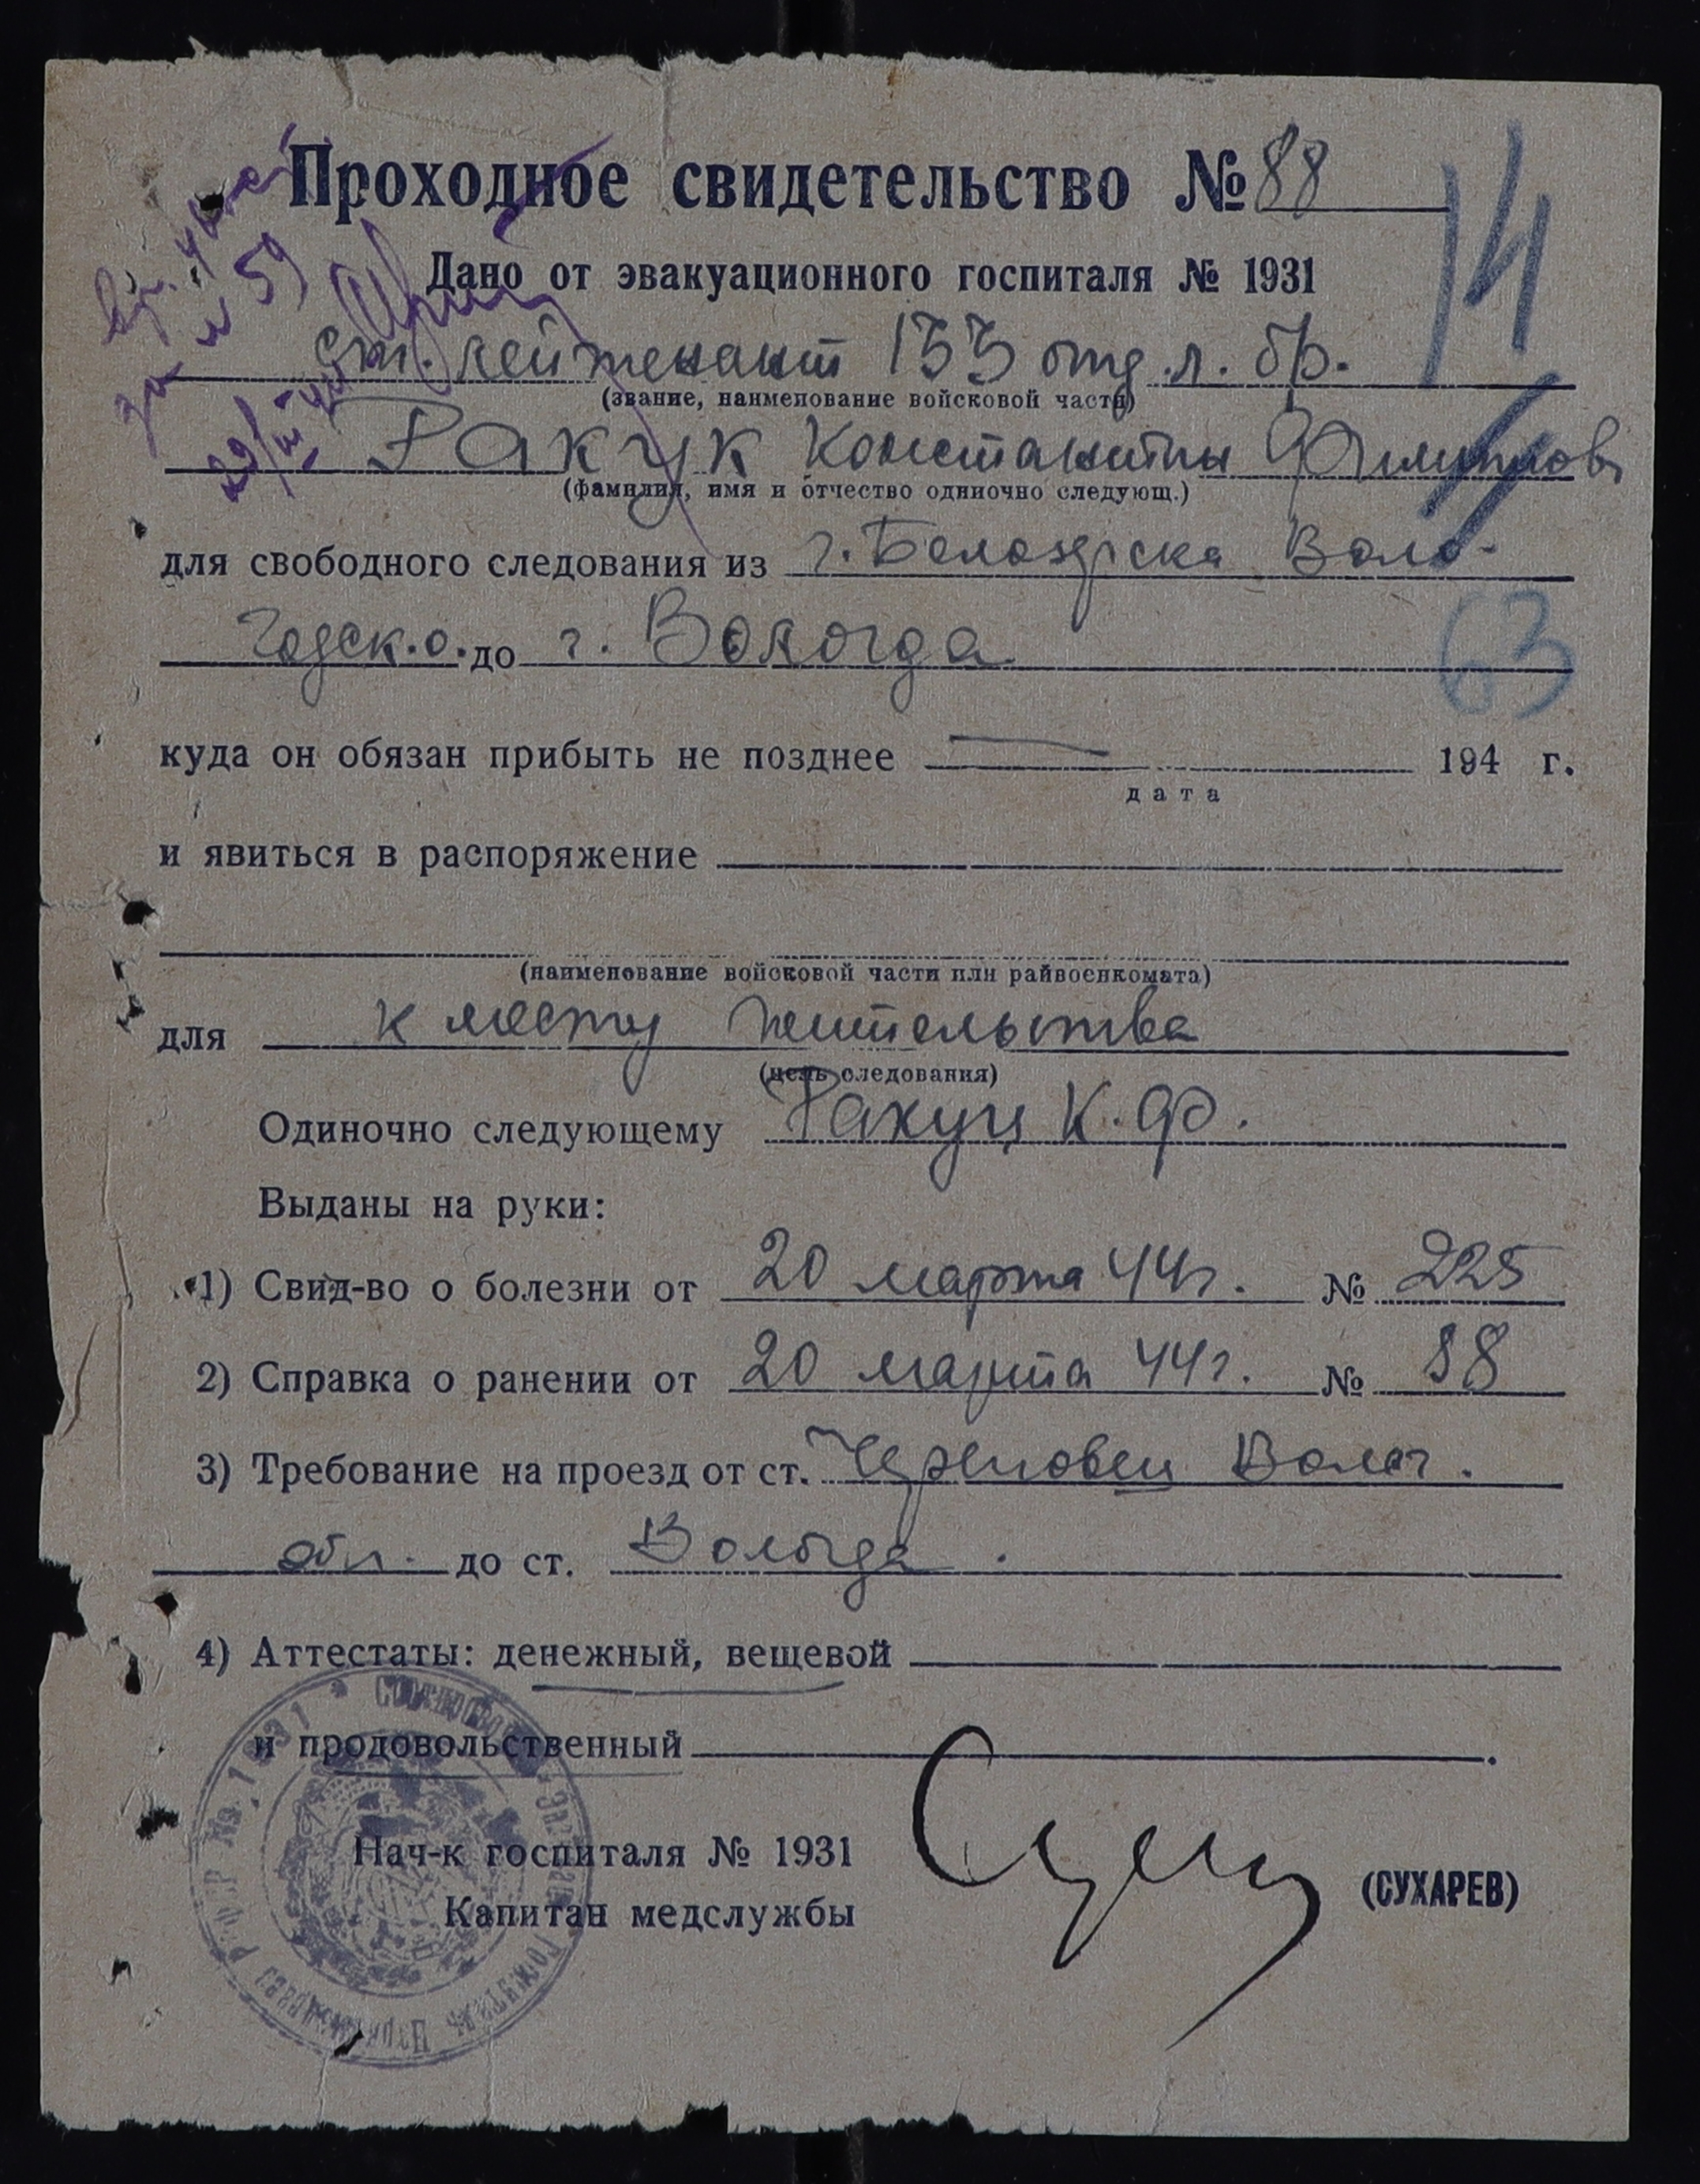 Проходное свидетельство № 88
14
Дано от эвакуационного госпиталя № 1931
за № 59
ст. лейтенант 133 отд. л. бр.
(звание, наименование войсковой части)
Ракуц Константин Филиппов.
(фамилия, имя и отчество одиночно следующ.)
для свободного следования из г. Белозерска Воло-
годск. о. до г. Вологда
63
куда он обязан прибыть не позднее — 194 г.
дата
и явиться в распоряжение
(наименование войсковой части или райвоенкомата)
для к месту жительства
(цель следования)
Одиночно следующему Ракуц К. Ф.
Выданы на руки:
1) Свид-во о болезни от 20 марта 44 г. № 225
2) Справка о ранении от 20 марта 44 г. № 88
3) Требование на проезд от ст. Череповец Волог.
обл. до ст. Вологда.
4) Аттестаты: денежный, вещевой
и продовольственный.
Нач-к госпиталя № 1931
Капитан медслужбы
(СУХАРЕВ)
РСФСР № 1931 * Госпиталь Наркомздрава